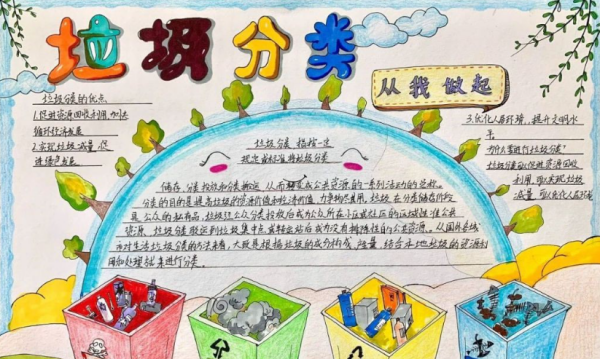 垃圾分类
从我做起
垃圾分类的优点
1.促进资源回收利用,
循环经济发展
2.实现垃圾减量,促
进绿色发展
垃圾分类 指按一定
规定或标准将垃圾分类
储存、分类投放和分类搬运,从而转变成公共资源的一系列活动的总称。
分类的目的是提高垃圾的资源价值和经济价值,力争物尽其用。垃圾在分类储存阶段
属公众的私有品,垃圾经公众分类投放后成为公众所在小区或社区的区域性准公共
资源,垃圾分类驳运到垃圾集中点或转运站后成为没有排除性的公共资源。从国外各城
市对生活垃圾分类的方法来看,大致是根据垃圾的成分构成、产量,结合本地垃圾的资源利
用和处理方式来进行分类。
3.优化人居环境,提升文明水
平。
为什么要进行垃圾分类?
垃圾分类可以促进资源回收
利用,可以实现垃圾
减量,可以优化人居环境